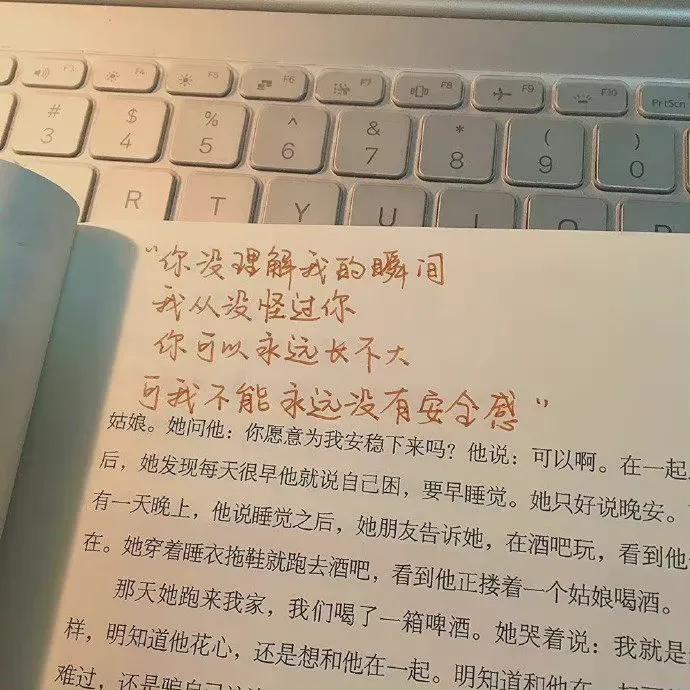 F3 F4 F5 F6 F7 F8 F9 F10 PrtScn
# $ % ^ & * ( )
3 4 5 6 7 8 9 0
R T Y U I O P
“你没理解我的瞬间
我从没怪过你
你可以永远长不大
可我不能永远没有安全感”
姑娘。她问他：你愿意为我安稳下来吗？他说：可以啊。在一起
后，她发现每天很早他就说自己困，要早睡觉。她只好说晚安。
有一天晚上，他说睡觉之后，她朋友告诉她，在酒吧玩，看到他
在。她穿着睡衣拖鞋就跑去酒吧，看到他正搂着一个姑娘喝酒。
那天她跑来我家，我们喝了一箱啤酒。她哭着说：我就是
样，明知道他花心，还是想和他在一起。明知道和他在一起
难过，还是骗自己